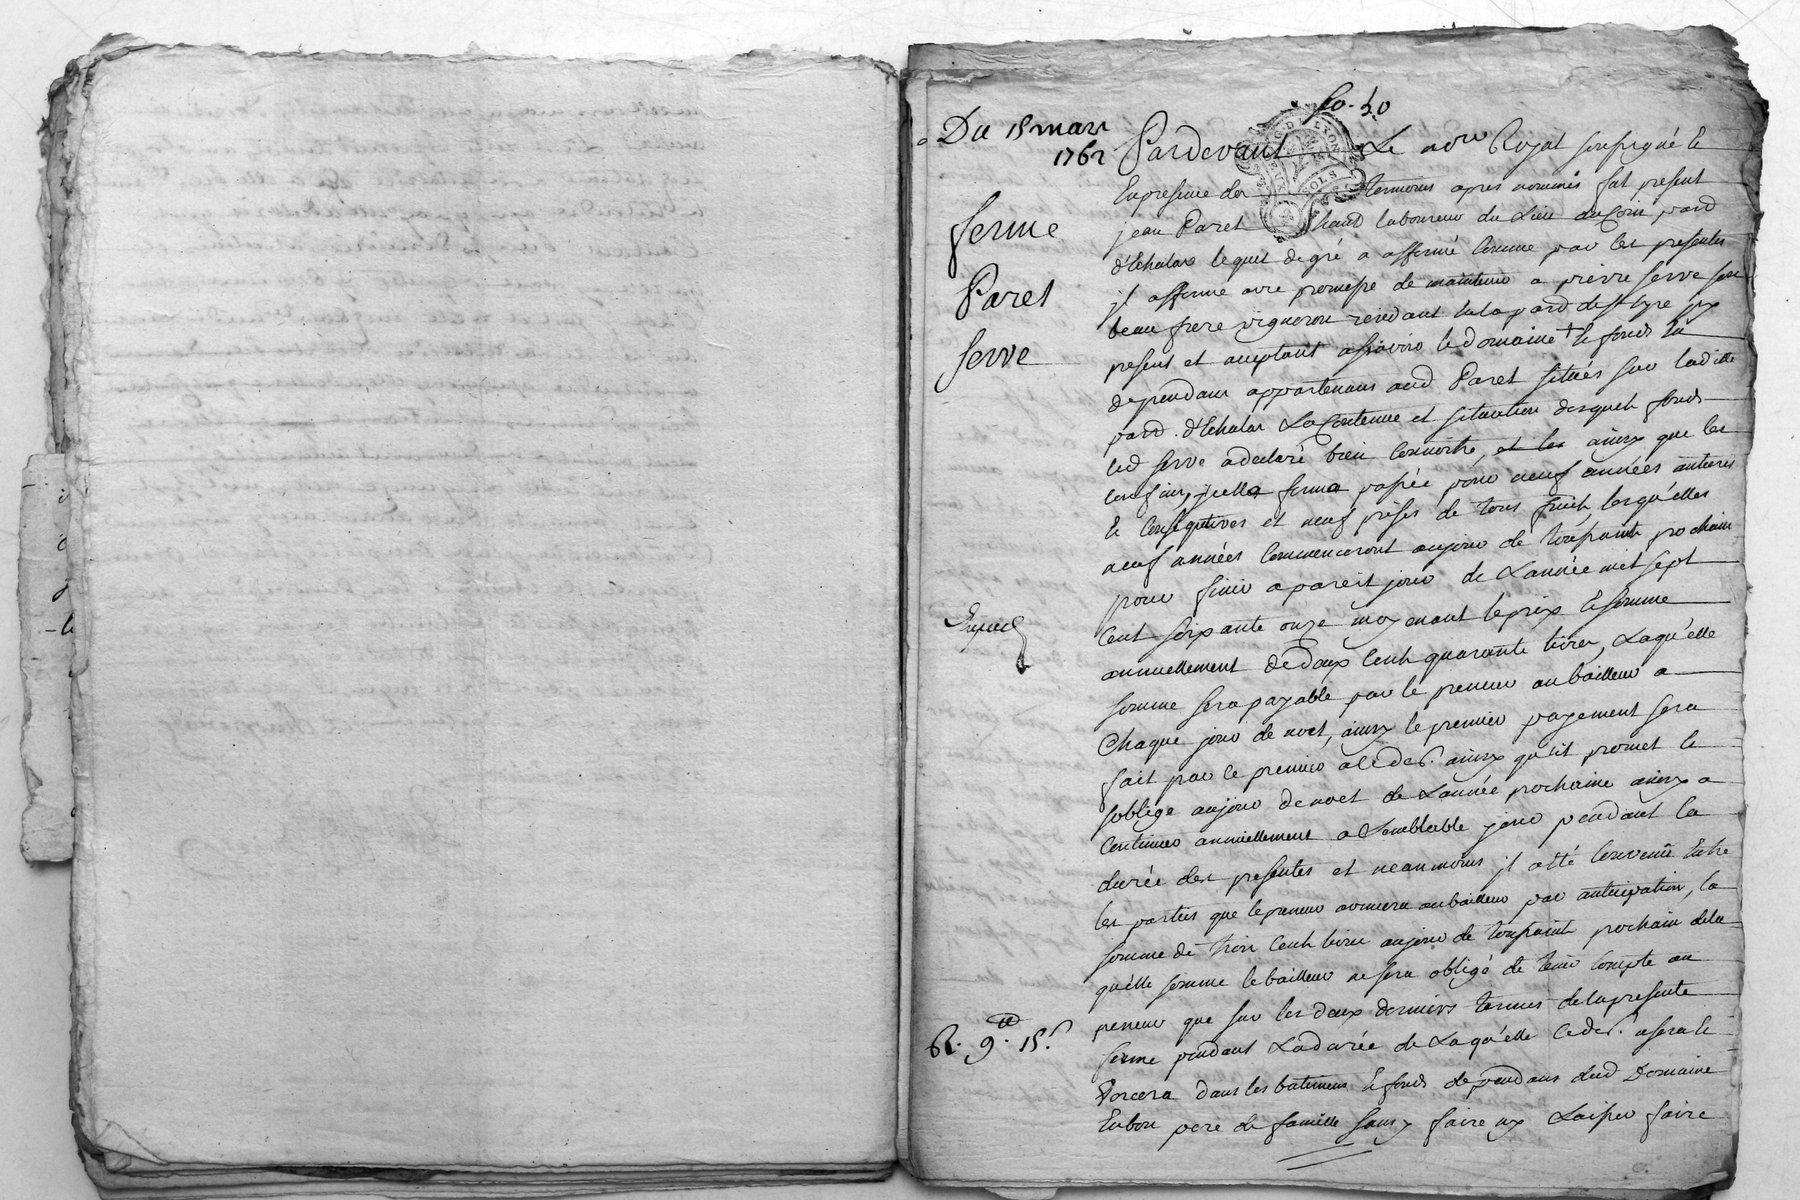 fo. 50
Du 15 mars
1762
ferme
Paret
Serve
Expedié
R. 9.tt 15.s
Pardevant Le no.re Royal soussigné et
En presence des temoins apres nommés fut present
jean Paret marchand laboureur du Lieu du Coin parr.
d'Echalas lequel de gré a affermé comme par les presentes
jl afferme avec promesse de maintenir a pierre Serve son
beau frere vigneron residant en la parr. de St Cyre jcy
present et acceptant assavoir le domaine + et fonds en
dependans appartenans aud Paret situés sur laditte
parr. d'Echalas La Contenue et situation desquels fonds
led Serve a declaré bien connoitre, et les ainsy que les
confins, jcelle ferme passée pour neuf années entieres
et consequtives et neuf prises de tous fruits, lesqu'elles
neuf années commenceront au jour de toussaints prochain
pour finir a pareil jour de L'année mil sept
cent soixante onze moyenant le prix et somme
annuellement de deux cents quarante livres, Laqu'elle
somme sera payable par le preneur au bailleur a
Chaque jour de noel, ainsy le premier payement sera
fait par le premier a led. ainsy qu'il promet et
s'oblige au jour de noel de L'année prochaine ainsy a
continuer annuellement a semblable jour pendant la
durée des presentes et neanmoins jl a été convenu entre
les parties que le preneur avancera au bailleur par anticipation, la
somme de trois cents livres au jour de toussaints prochain dela
qu'elle somme le bailleur ne sera obligé de tenir compte au
preneur que sur les deux derniers termes de la presente
ferme pendant La durée de Laqu'elle
dans les batimens et fonds dependans dud Domaine
En bon pere de famille sans y faire ny Laisser faire